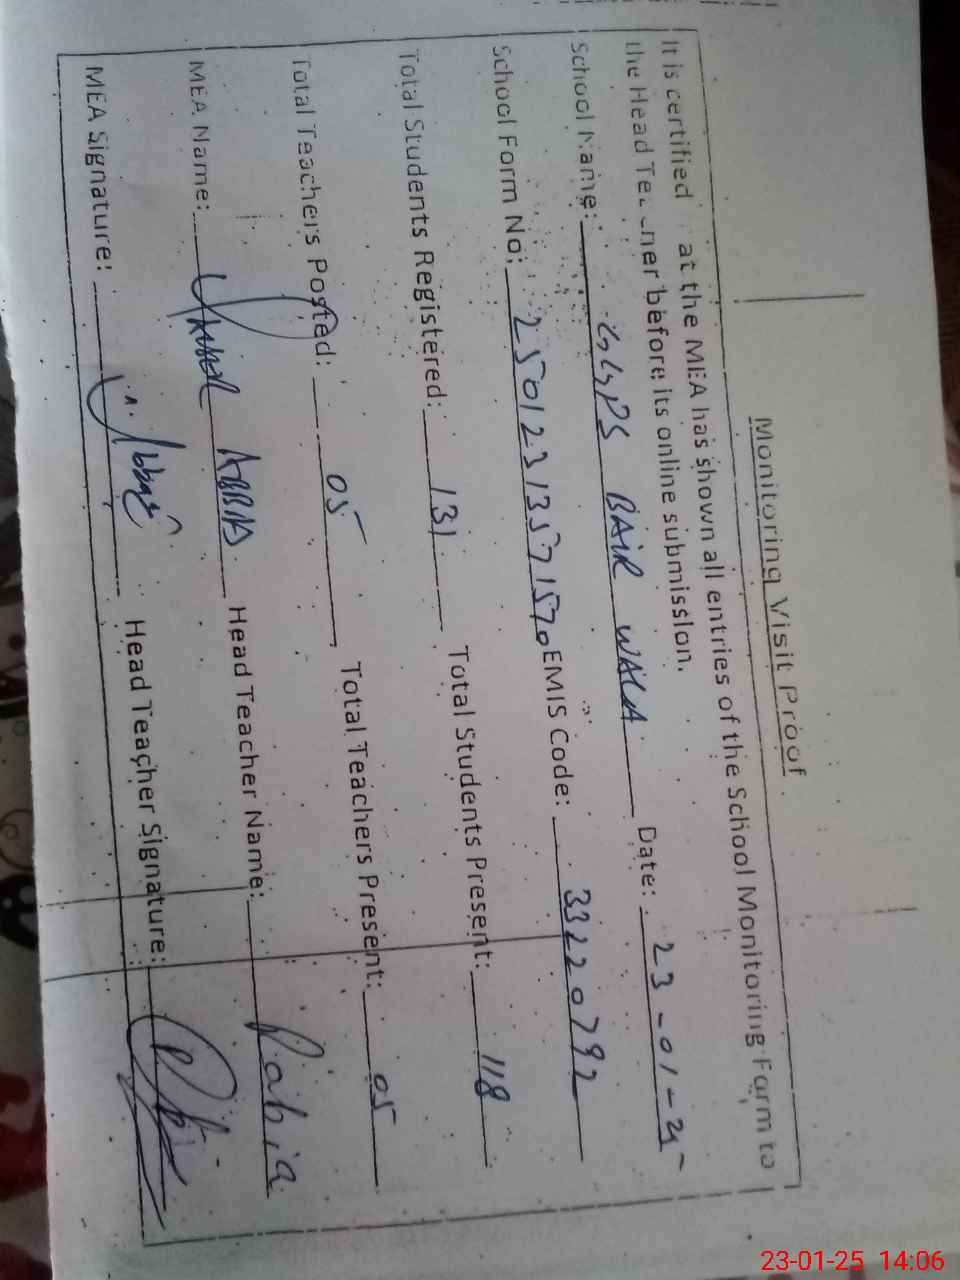 Monitoring Visit Proof
It is certified at the MEA has shown all entries of the School Monitoring Form to
the Head Teacher before its online submission.
School Name: GGPS BAIR WALA Date: 23-01-25
School Form No: 25012313571570 EMIS Code: 33220792
Total Students Registered: 131 Total Students Present: 118
Total Teachers Posted: 05 Total Teachers Present: 05
MEA Name: ABBAS Head Teacher Name: Rabia
MEA Signature: Abbas Head Teacher Signature:
23-01-25 14:06